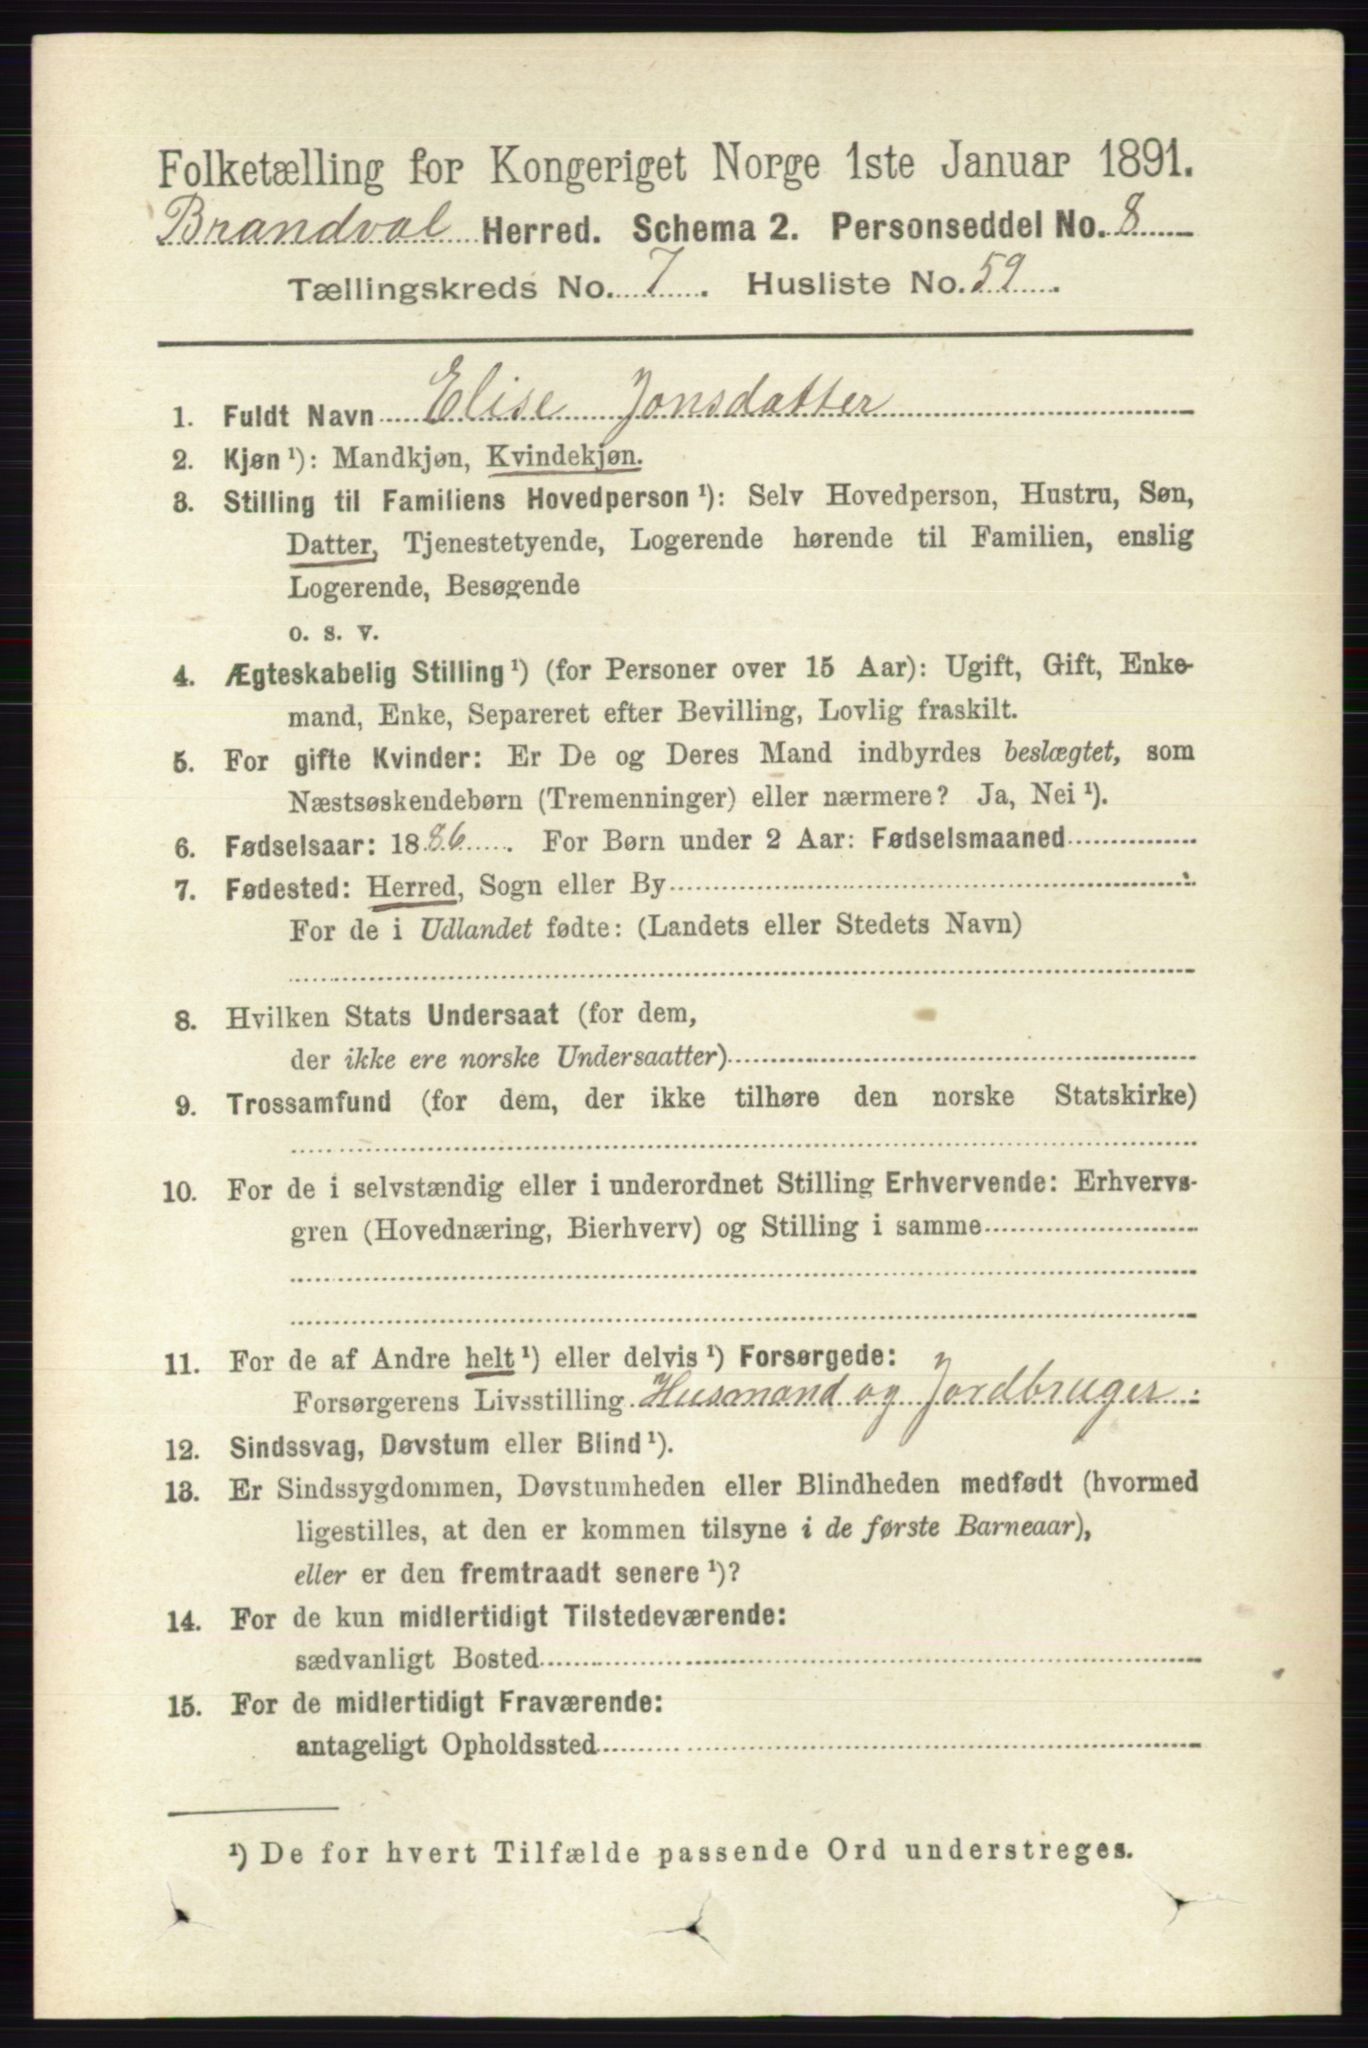 Folketælling for Kongeriget Norge 1ste Januar 1891.
Brandval Herred. Schema 2. Personseddel No. 8
Tællingskreds No. 7. Husliste No. 59.
1. Fuldt Navn Elise Jonsdatter
2. Kjøn ¹): Mandkjøn, Kvindekjøn.
3. Stilling til Familiens Hovedperson ¹): Selv Hovedperson, Hustru, Søn,
Datter, Tjenestetyende, Logerende hørende til Familien, enslig
Logerende, Besøgende
o. s. v.
4. Ægteskabelig Stilling ¹) (for Personer over 15 Aar): Ugift, Gift, Enke-
mand, Enke, Separeret efter Bevilling, Lovlig fraskilt.
5. For gifte Kvinder: Er De og Deres Mand indbyrdes beslægtet, som
Næstsøskendebørn (Tremenninger) eller nærmere? Ja, Nei ¹).
6. Fødselsaar: 1886. For Børn under 2 Aar: Fødselsmaaned
7. Fødested: Herred, Sogn eller By
For de i Udlandet fødte: (Landets eller Stedets Navn)
8. Hvilken Stats Undersaat (for dem,
der ikke ere norske Undersaatter)
9. Trossamfund (for dem, der ikke tilhøre den norske Statskirke)
10. For de i selvstændig eller i underordnet Stilling Erhvervende: Erhvervs-
gren (Hovednæring, Bierhverv) og Stilling i samme
11. For de af Andre helt ¹) eller delvis ¹) Forsørgede:
Forsørgerens Livsstilling Husmand og Jordbruger
12. Sindssvag, Døvstum eller Blind ¹).
13. Er Sindssygdommen, Døvstumheden eller Blindheden medfødt (hvormed
ligestilles, at den er kommen tilsyne i de første Barneaar),
eller er den fremtraadt senere ¹)?
14. For de kun midlertidigt Tilstedeværende:
sædvanligt Bosted
15. For de midlertidigt Fraværende:
antageligt Opholdssted
¹) De for hvert Tilfælde passende Ord understreges.